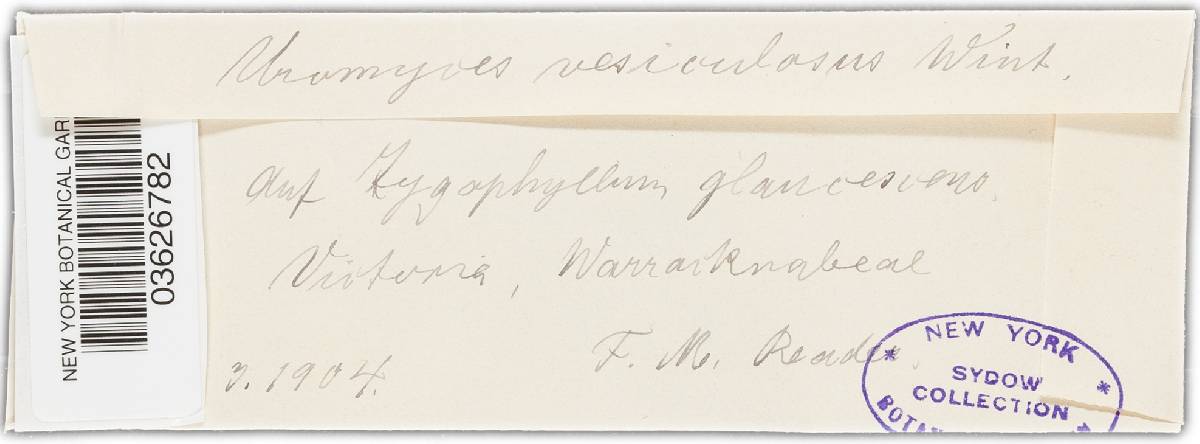 Uromyces vesiculosus Wint.
auf Zygophyllum glaucescens.
Victoria, Warracknabeal
F. M. Reader.
3. 1904.
NEW YORK BOTANICAL GAR
03626782
* NEW YORK *
SYDOW
COLLECTION
BOTA